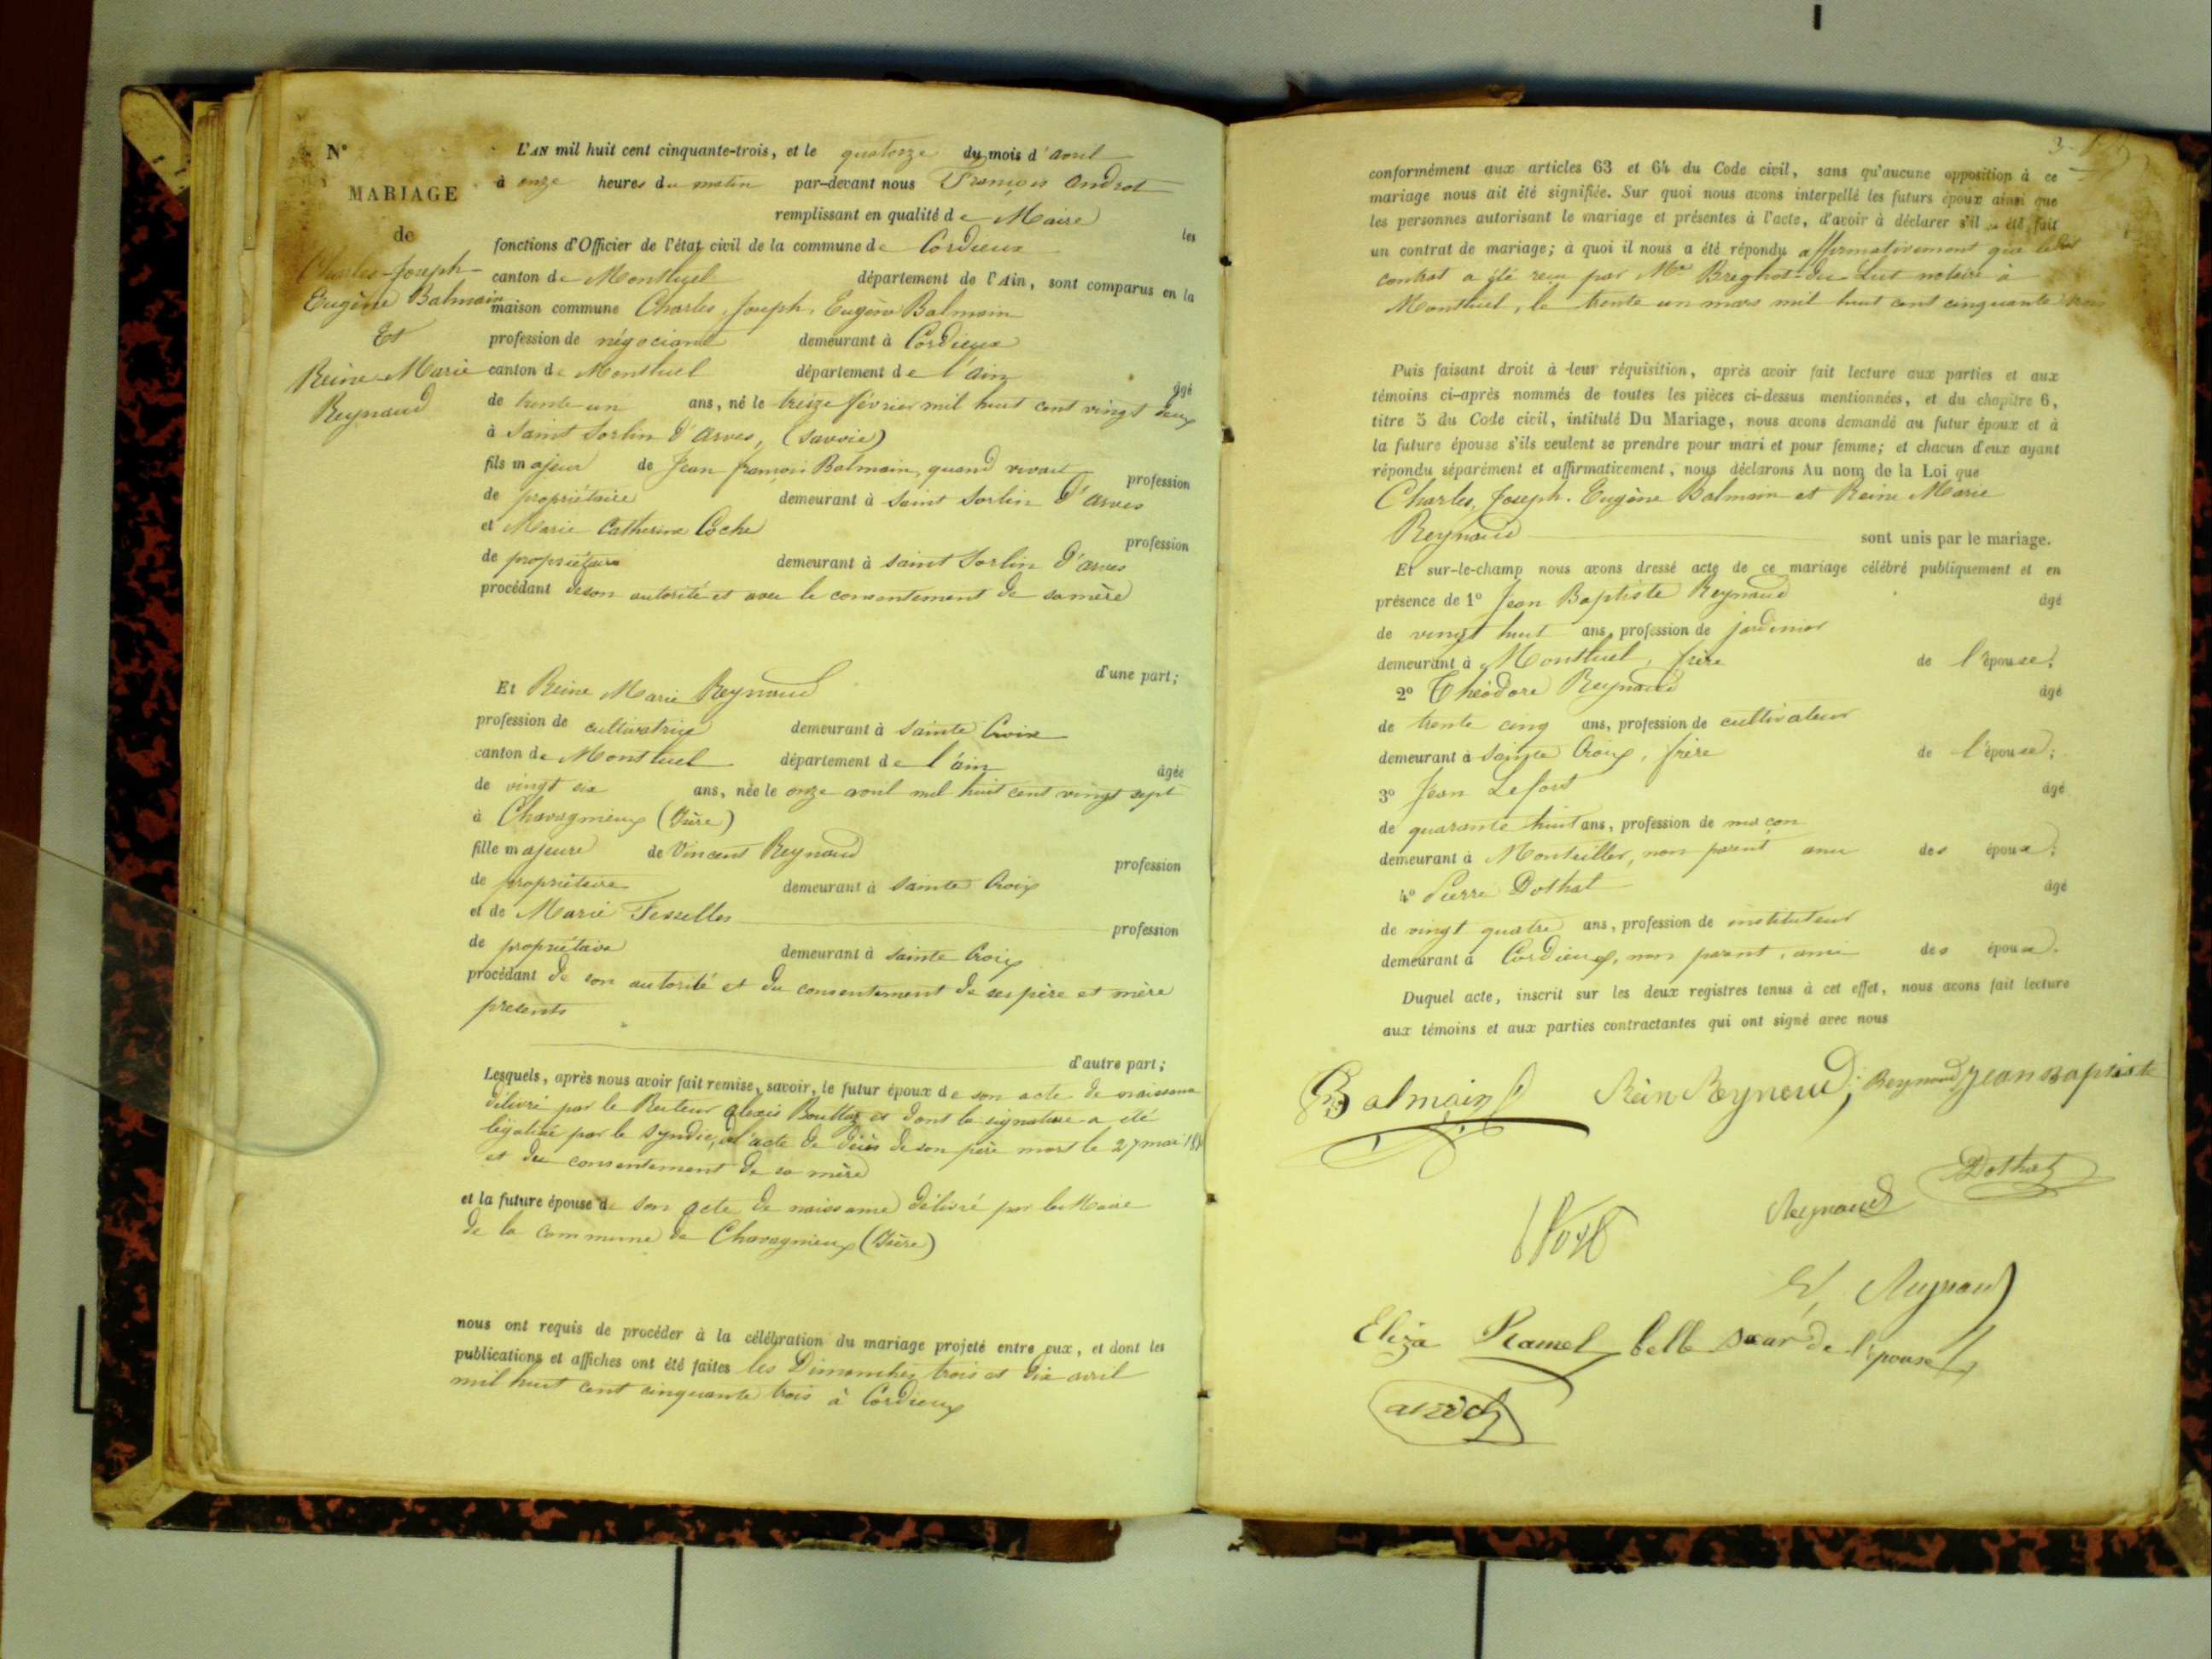 N°
MARIAGE
de
Charles-Joseph-
Eugène Balmain
Et
Reine Marie
Reynaud
L'AN mil huit cent cinquante-trois, et le quatorze du mois d'avril
à onze heures du matin par-devant nous François Androt
remplissant en qualité de Maire les
fonctions d'Officier de l'état civil de la commune de Cordieux
canton de Montluel département de l'Ain, sont comparus en la
maison commune Charles, Joseph, Eugène Balmain
profession de négociant demeurant à Cordieux
canton de Montluel département de l'ain âgé
de trente un ans, né le treize février mil huit cent vingt deux
à Saint Sorlin d'arves, (Savoie)
fils majeur de Jean françois Balmain, quand vivait profession
de propriétaire demeurant à Saint Sorlin d'arves
et Marie Catherine Coche profession
de propriétaire demeurant à saint Sorlin d'arves
procédant de son autorité et avec le consentement de sa mère
d'une part;
Et Reine Marie Reynaud
profession de cultivatrice demeurant à Sainte Croix
canton de Montluel département de l'ain âgée
de vingt six ans, née le onze avril mil huit cent vingt sept
à Chavagnieux (Isère)
fille majeure de Vincent Reynaud profession
de propriétaire demeurant à Sainte Croix
et de Marie Fesselles profession
de propriétaire demeurant à Sainte Croix
procédant de son autorité et du consentement de ses père et mère
présents
d'autre part;
Lesquels, après nous avoir fait remise, savoir, le futur époux de son acte de naissance
délivré par le Recteur alexis Bouttaz et dont la signature a été
légalisé par le Syndic, de l'acte de décès de son père mort le 27 mai
et du consentement de sa mère
et la future épouse de son acte de naissance délivré par le Maire
de la commune de Chavagnieux (Isère)
nous ont requis de procéder à la célébration du mariage projeté entre eux, et dont les
publications et affiches ont été faites les Dimanches trois et dix avril
mil huit cent cinquante trois à Cordieux
conformément aux articles 63 et 64 du Code civil, sans qu'aucune opposition à ce
mariage nous ait été signifiée. Sur quoi nous avons interpellé les futurs époux ainsi que
les personnes autorisant le mariage et présentes à l'acte, d'avoir à déclarer s'il a été fait
un contrat de mariage; à quoi il nous a été répondu affirmativement que ledit
contrat a été reçu par Me Breghot-du-Lut notaire à
Montluel, le trente un mars mil huit cent cinquante trois
Puis faisant droit à leur réquisition, après avoir fait lecture aux parties et aux
témoins ci-après nommés de toutes les pièces ci-dessus mentionnées, et du chapitre 6,
titre 5 du Code civil, intitulé Du Mariage, nous avons demandé au futur époux et à
la future épouse s'ils veulent se prendre pour mari et pour femme; et chacun d'eux ayant
répondu séparément et affirmativement, nous déclarons Au nom de la Loi que
Charles, Joseph, Eugène Balmain et Reine Marie
Reynaud sont unis par le mariage.
Et sur-le-champ nous avons dressé acte de ce mariage célébré publiquement et en
présence de 1° Jean Baptiste Reynaud âgé
de vingt huit ans, profession de jardinier
demeurant à Montluel, frère de l'épouse;
2° Théodore Reynaud âgé
de trente cinq ans, profession de cultivateur
demeurant à Sainte Croix, frère de l'épouse;
3° Jean Lefort âgé
de quarante huit ans, profession de maçon
demeurant à Montellier, non parent ami des époux;
4° Pierre Dothal âgé
de vingt quatre ans, profession de instituteur
demeurant à Cordieux, non parent, ami des époux.
Duquel acte, inscrit sur les deux registres tenus à cet effet, nous avons fait lecture
aux témoins et aux parties contractantes qui ont signé avec nous
Balmain Rein Reynaud; Reynaud Jean Baptiste
Dothal
Reynaud
Reynaud
Eliza Ramel belle sœur de l'épouse